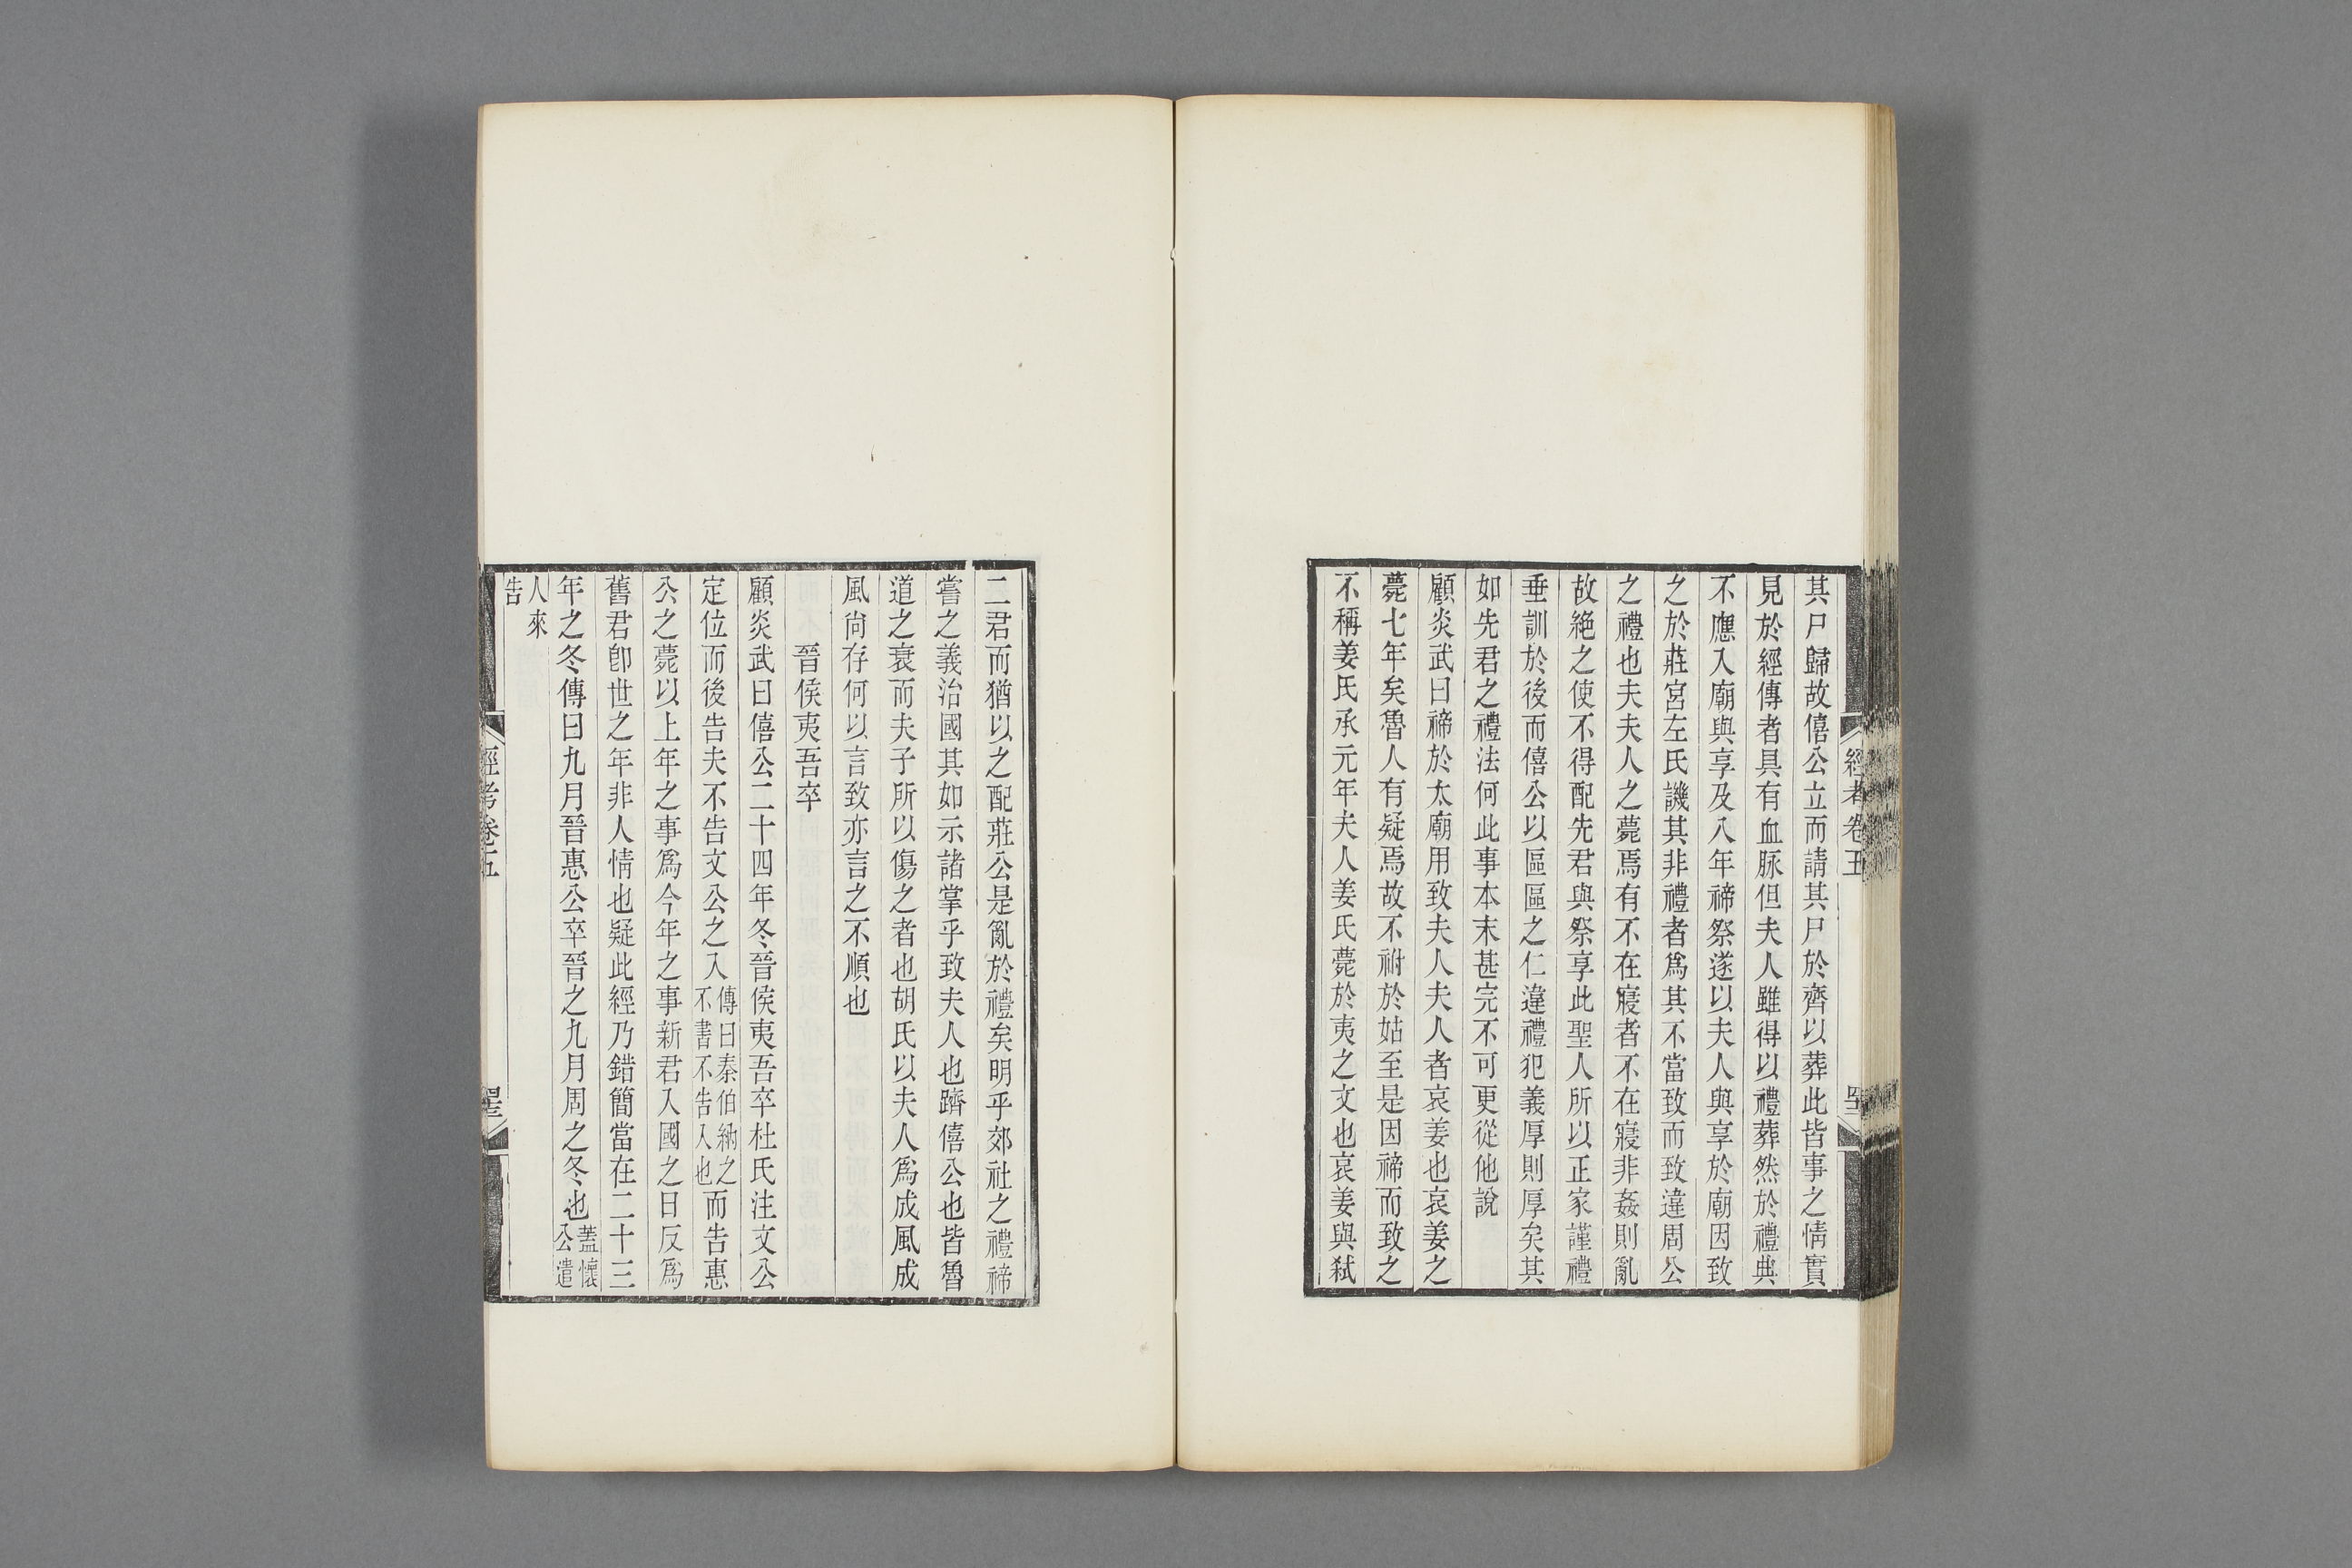 其尸歸故僖公立而請其尸於齊以葬此皆事之情實
見於經傳者具有血脉但夫人雖得以禮葬然於禮典
不應入廟與享及八年禘祭遂以夫人與享於廟因致
之於莊宮左氏譏其非禮者爲其不當致而致違周公
之禮也夫夫人之薨焉有不在寢者不在寢非姦則亂
故絕之使不得配先君與祭享此聖人所以正家謹禮
垂訓於後而僖公以區區之仁違禮犯義厚則厚矣其
如先君之禮法何此事本末甚完不可更從他說
顧炎武曰禘於太廟用致夫人夫人者哀姜也哀姜之
薨七年矣魯人有疑焉故不祔於姑至是因禘而致之
不稱姜氏承元年夫人姜氏薨於夷之文也哀姜與弒
經考卷五
二君而猶以之配莊公是亂於禮矣明乎郊社之禮禘
嘗之義治國其如示諸掌乎致夫人也躋僖公也皆魯
道之衰而夫子所以傷之者也胡氏以夫人爲成風成
風尙存何以言致亦言之不順也
晉侯夷吾卒
顧炎武曰僖公二十四年冬晉侯夷吾卒杜氏注文公
定位而後告夫不告文公之入傳曰秦伯納之不書不告入也而告惠
公之薨以上年之事爲今年之事新君入國之日反爲
舊君卽世之年非人情也疑此經乃錯簡當在二十三
年之冬傳曰九月晉惠公卒晉之九月周之冬也蓋懷公遣
人來告
經考卷五